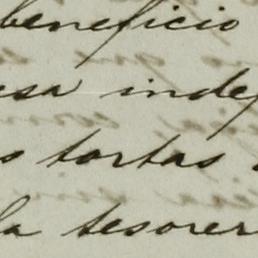 beneficio
esa inde
s tortas
la tesorer